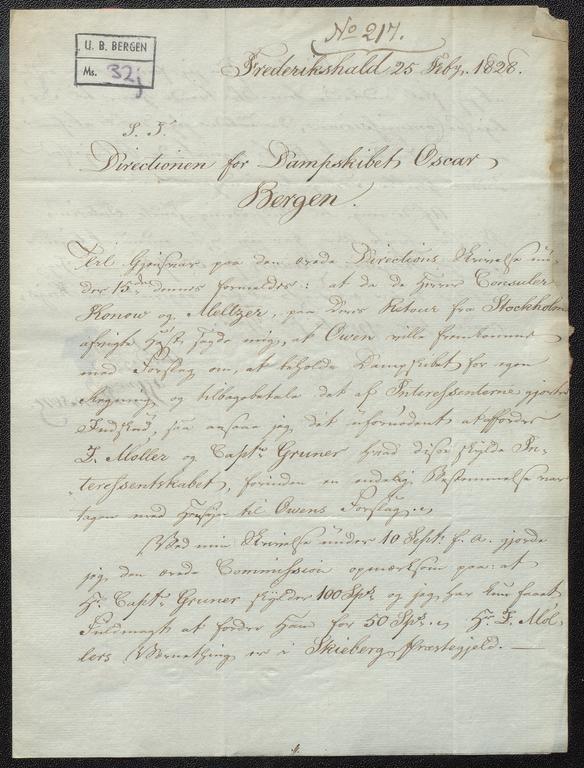 No 217.
U. B. BERGEN
Ms. 32j
Frederikshald 25 Feby. 1828.
S. T.
Directionen for Dampskibet Oscar
Bergen.
Til Gjensvar paa den ærede Directions Skrivelse un-
der 15de dennes formeldes: at da de Herrer Consuler
Konow og Meltzer, paa Deres Retour fra Stockholm
afvigte Høst sagde mig, at Owen ville fremkomme
med Forslag om, at beholde Dampskibet for egen
Regning, og tilbagebetale det af Interessenterne gjorte
Indskud, saa ansaae jeg det ufornødent at affordre
F. Møller og Captn Gruner hvad disse skylde In-
teressentskabet, forinden en endelig Bestemmelse var
tagen med Hensyn til Owens Forslag.
Ved min Skrivelse under 10 Septr f. a. gjorde
jeg den ærede Commission opmærksom paa: at
Hr Captn Gruner skylder 100 Spd. og jeg har kun faaet
Fuldmagt at fordre Ham for 50 Spd. Hr F. Møl-
lers Værnething er i Skieberg Præstegjeld. —